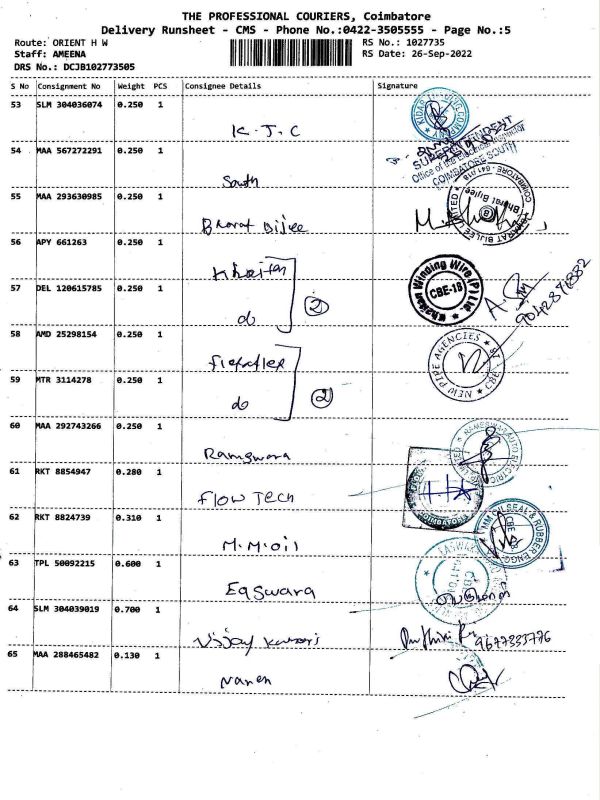 THE PROFESSIONAL COURIERS, Coimbatore
Delivery Runsheet - CMS - Phone No.:0422-3505555 - Page No.:5
Route: ORIENT H W
RS No.: 1027735
Staff: AMEENA
RS Date: 26-Sep-2022
DRS No.: DCJB102773505
S No Consignment No Weight PCS Consignee Details Signature
53 SLM 304036074 0.250 1
K.J.C
SUPERINTENDENT
Office of the Electrical Inspector
COIMBATORE SOUTH
54 MAA 567272291 0.250 1
South
55 MAA 293630985 0.250 1
Bharat Bijlee
BHARAT BIJLEE LIMITED
COIMBATORE - 641 018
Bharat Bijlee
56 APY 661263 0.250 1
Khaitan
57 DEL 120615785 0.250 1
do
2
Khaitan Winding Wire (P) Ltd
CBE-18
9042871882
58 AMD 25298154 0.250 1
NEW PIPE AGENCIES
CBE-18
59 MTR 3114278 0.250 1
do
2
60 MAA 292743266 0.250 1
Rameswara
RAMESWAR AUTO ELECTRIC
61 RKT 8854947 0.280 1
Flow Tech
COIMBATORE
62 RKT 8824739 0.310 1
M.M.oil
MM OIL SEAL & RUBBER ENGG
CBE
63 TPL 50092215 0.600 1
Easwara
64 SLM 304039019 0.700 1
Vijay
9677333776
65 MAA 288465482 0.130 1
Naren